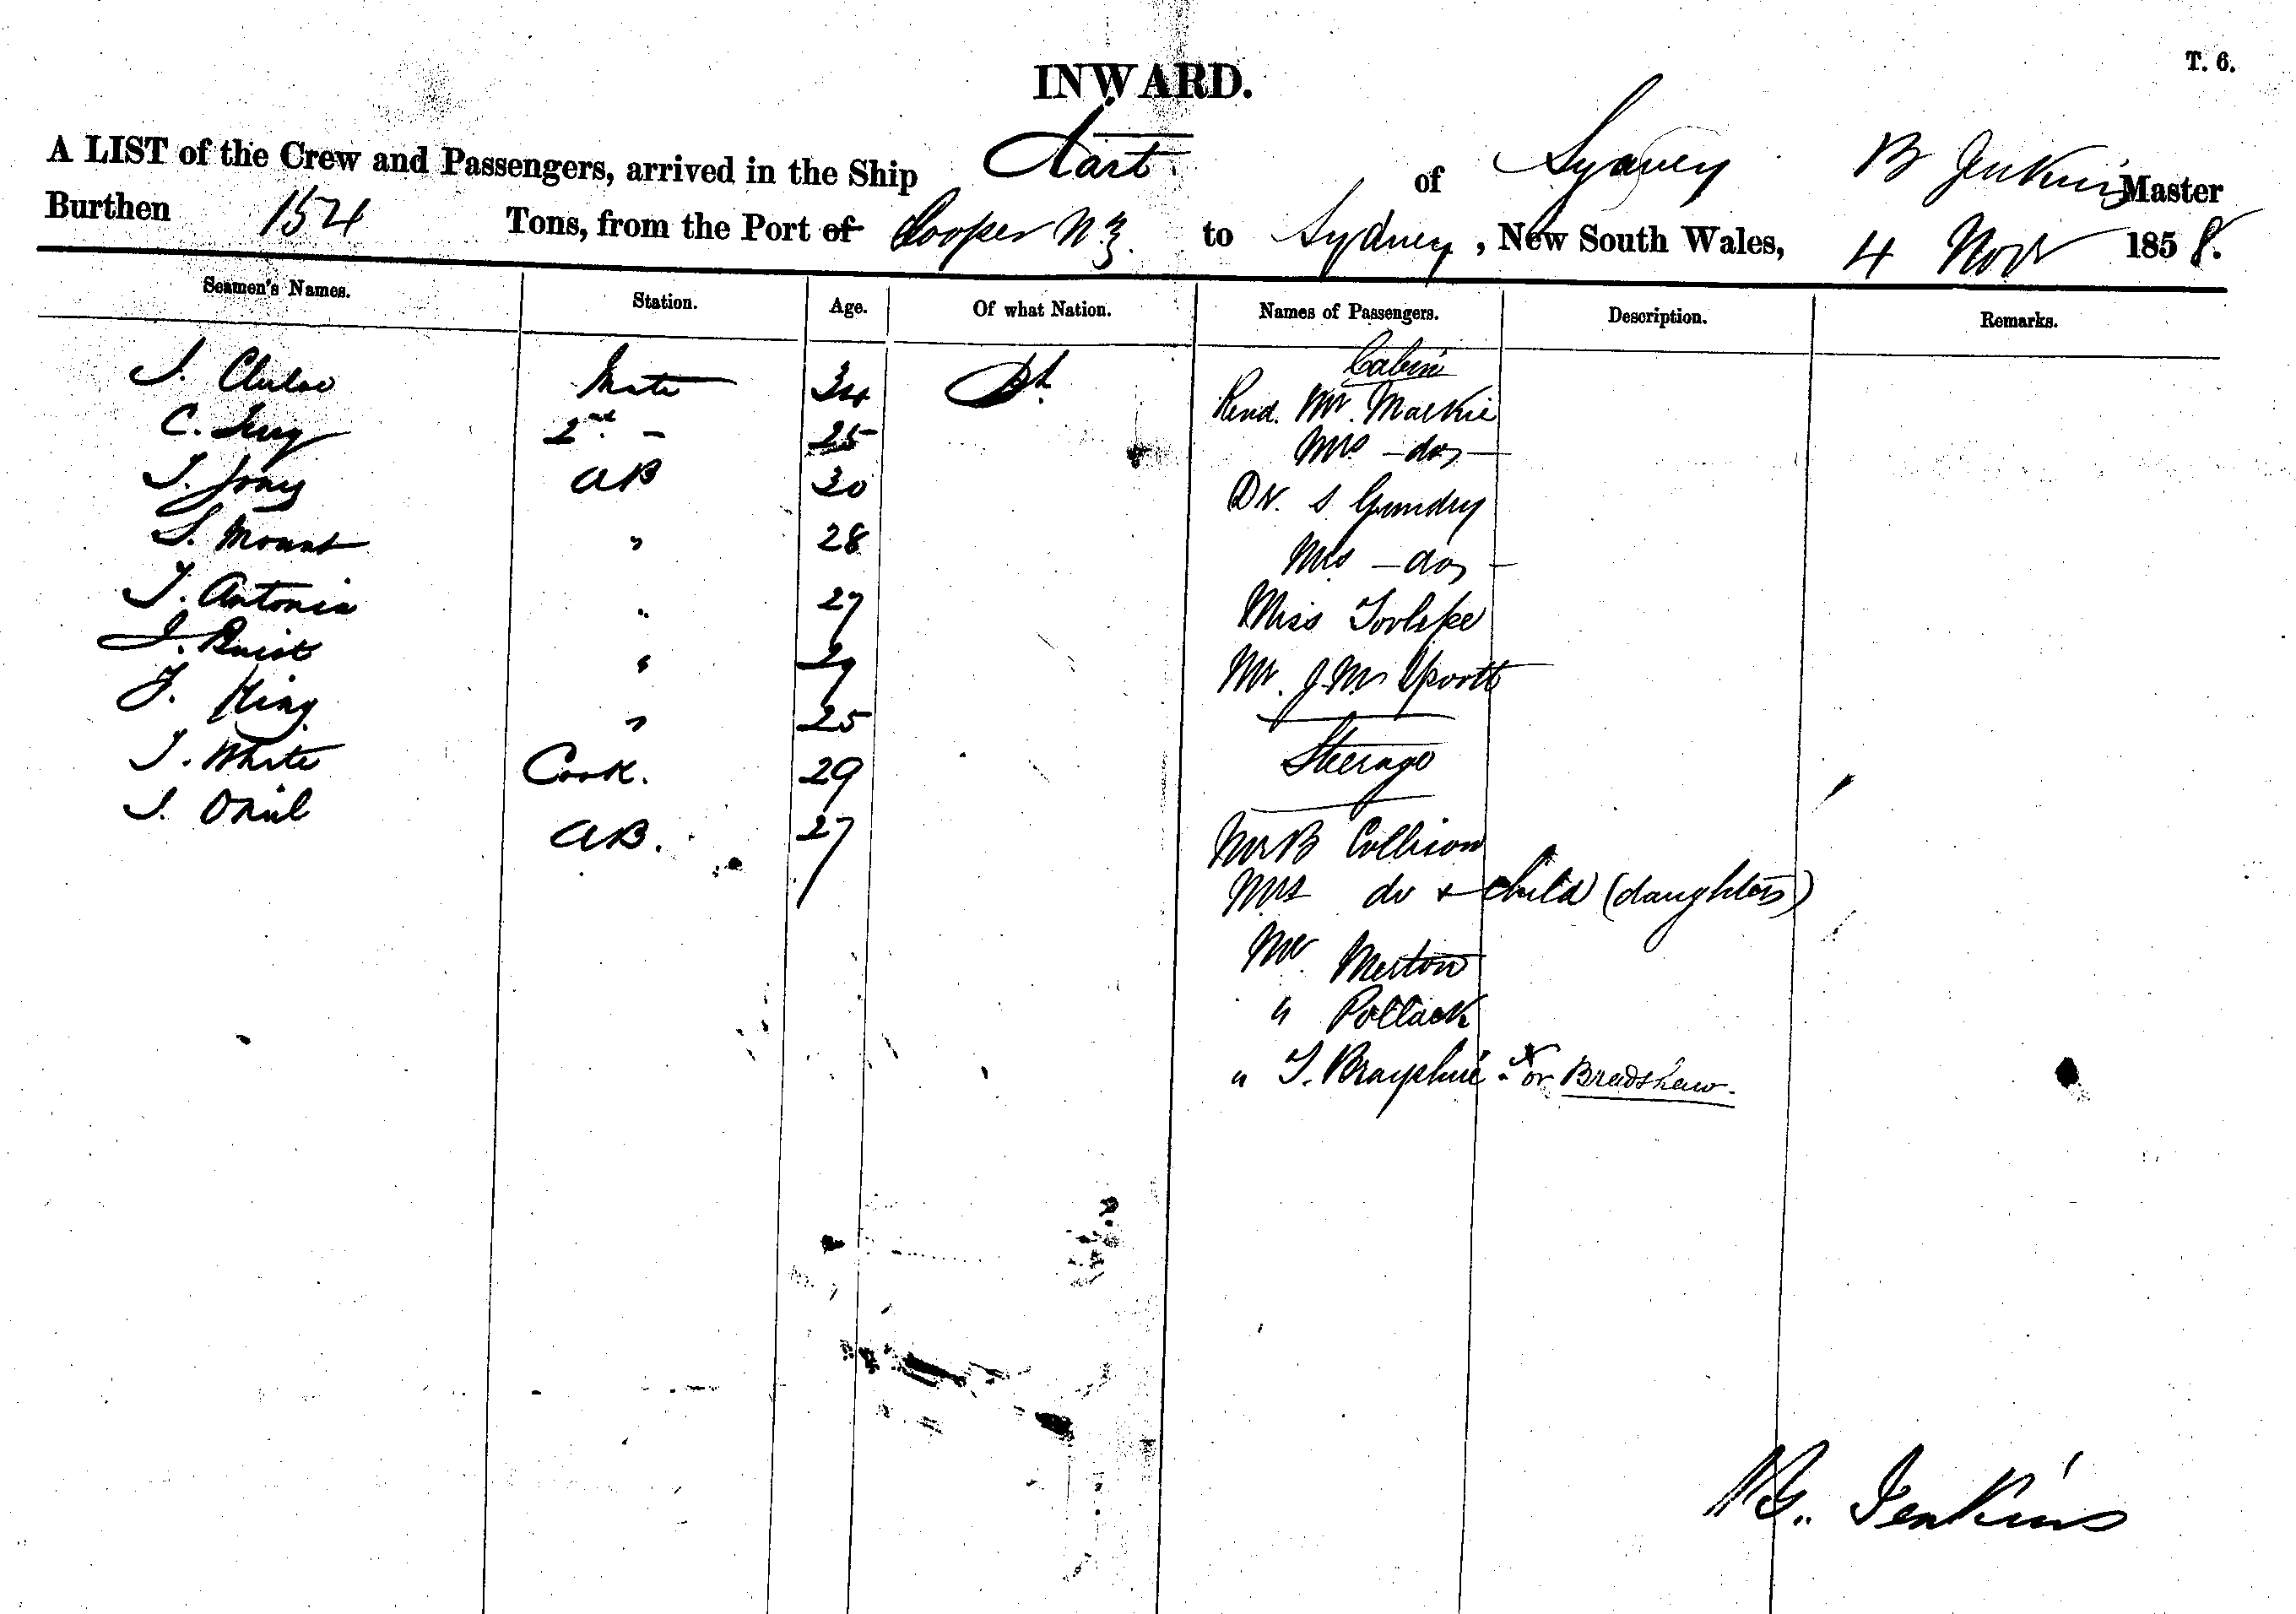 T. 6.
INWARD.
A LIST of the Crew and Passengers, arrived in the Ship Dart of Sydney B Jenkins Master
Burthen 154 Tons, from the Port of Cooper N.Z. to Sydney, New South Wales, 4 Novr 1858.
Seamen's Names. Station. Age. Of what Nation. Names of Passengers. Description. Remarks.
Cabin
J. Mate 34 Bt.
Revd. Mr. Mackie
C. 2nd - 25
Mrs - do -
J. Jones AB 30
Dr. S Gundry
S. Mount " 28
Mrs - do -
J. Antonia " 27
Miss
J. Buist " 29
Mr. J.M.
J. King " 25
Steerage
J. White Cook. 29
J. ONeil AB. 27
Mr B Collison
Mrs do + child (daughters)
Mr Merton
" Pollack
" T. Brayshue x or Bradshaw.
B. Jenkins